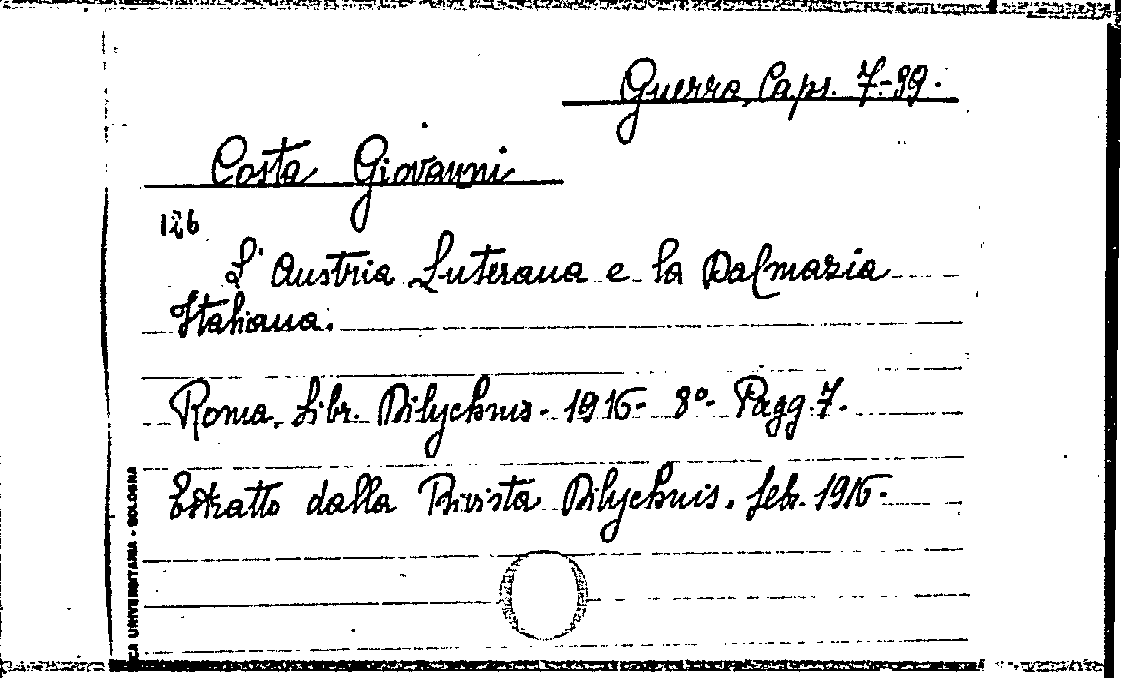 Guerra, Caps. 7-39.
Costa Giovanni
126
L' Austria Luterana e la Dalmazia
Italiana.
Roma, Libr. Bilychnis - 1916 - 8º - Pagg. 7.
Estratto dalla Rivista Bilychnis. febr. 1916 -
CA UNIVERSITARIA - BOLOGNA